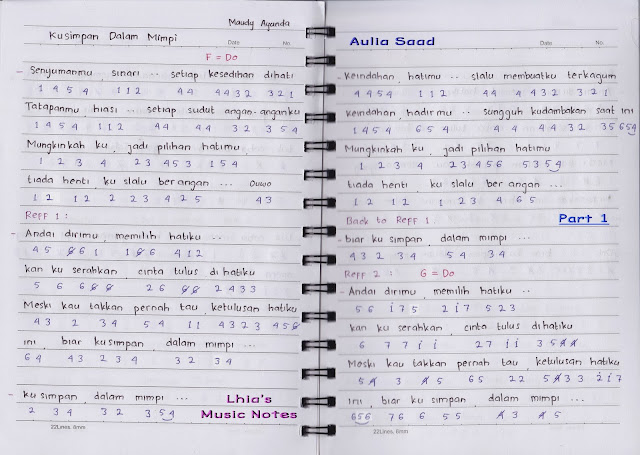 Maudy Ayunda
Kusimpan Dalam Mimpi
Date No.
F = Do
- Senyumanmu, sinari .. setiap kesedihan dihati
1 4 5 4 1 1 2 4 4 4 4 3 2 3 2 1
Tatapanmu, hiasi .. setiap sudut angan-anganku
1 4 5 4 1 1 2 4 4 4 4 3 2 3 5 4
Mungkinkah ku, jadi pilihan hatimu,
1 2 3 4 2 3 4 5 3 1 5 4
tiada henti, ku slalu ber angan ... Ouwo
1 2 1 2 2 2 3 4 2 5 4 3
Reff 1 :
- Andai dirimu, memilih hatiku ..
4 5 6 6 1 1 6 6 4 1 2
kan ku serahkan, cinta tulus dihatiku
5 6 6 6 6 2 6 6 6 2 4 3 3
Meski kau takkan pernah tau, ketulusan hatiku
4 3 2 3 4 5 4 1 1 4 3 2 3 4 5 6
ini, biar kusimpan, dalam mimpi ...
6 4 4 3 2 3 4 3 2 3 4
- ku simpan, dalam mimpi ...
2 3 4 3 2 3 5 4
Lhia's
Music Notes
22Lines, 6mm
Aulia Saad
Date No.
- Keindahan, hatimu .. slalu membuatku terkagum
4 4 5 4 1 1 2 4 4 4 4 3 2 3 2 1
Keindahan, hadirmu .. sungguh kudambakan saat ini
1 4 5 4 6 5 4 4 4 4 4 3 2 3 5 6 5 4
Mungkinkah ku, jadi pilihan hatimu
1 2 3 4 2 3 4 5 6 5 3 5 4
tiada henti, ku slalu ber angan ...
1 2 1 2 1 2 3 4 6 5
Back to Reff 1
Part 1
- biar ku simpan, dalam mimpi ...
4 3 2 3 4 5 4 3 4
Reff 2 : G = Do
- Andai dirimu, memilih hatiku ..
5 6 i 7 5 2 i 7 5 2 3
kan ku serahkan, cinta tulus dihatiku
6 7 7 i i 2 7 i i 3 5 4 4
Meski kau takkan pernah tau, ketulusan hatiku
5 4 3 4 5 6 5 2 2 5 4 3 3 2 i 7
ini, biar ku simpan, dalam mimpi ...
6 5 6 7 6 6 5 5 4 3 4 5
22Lines, 6mm